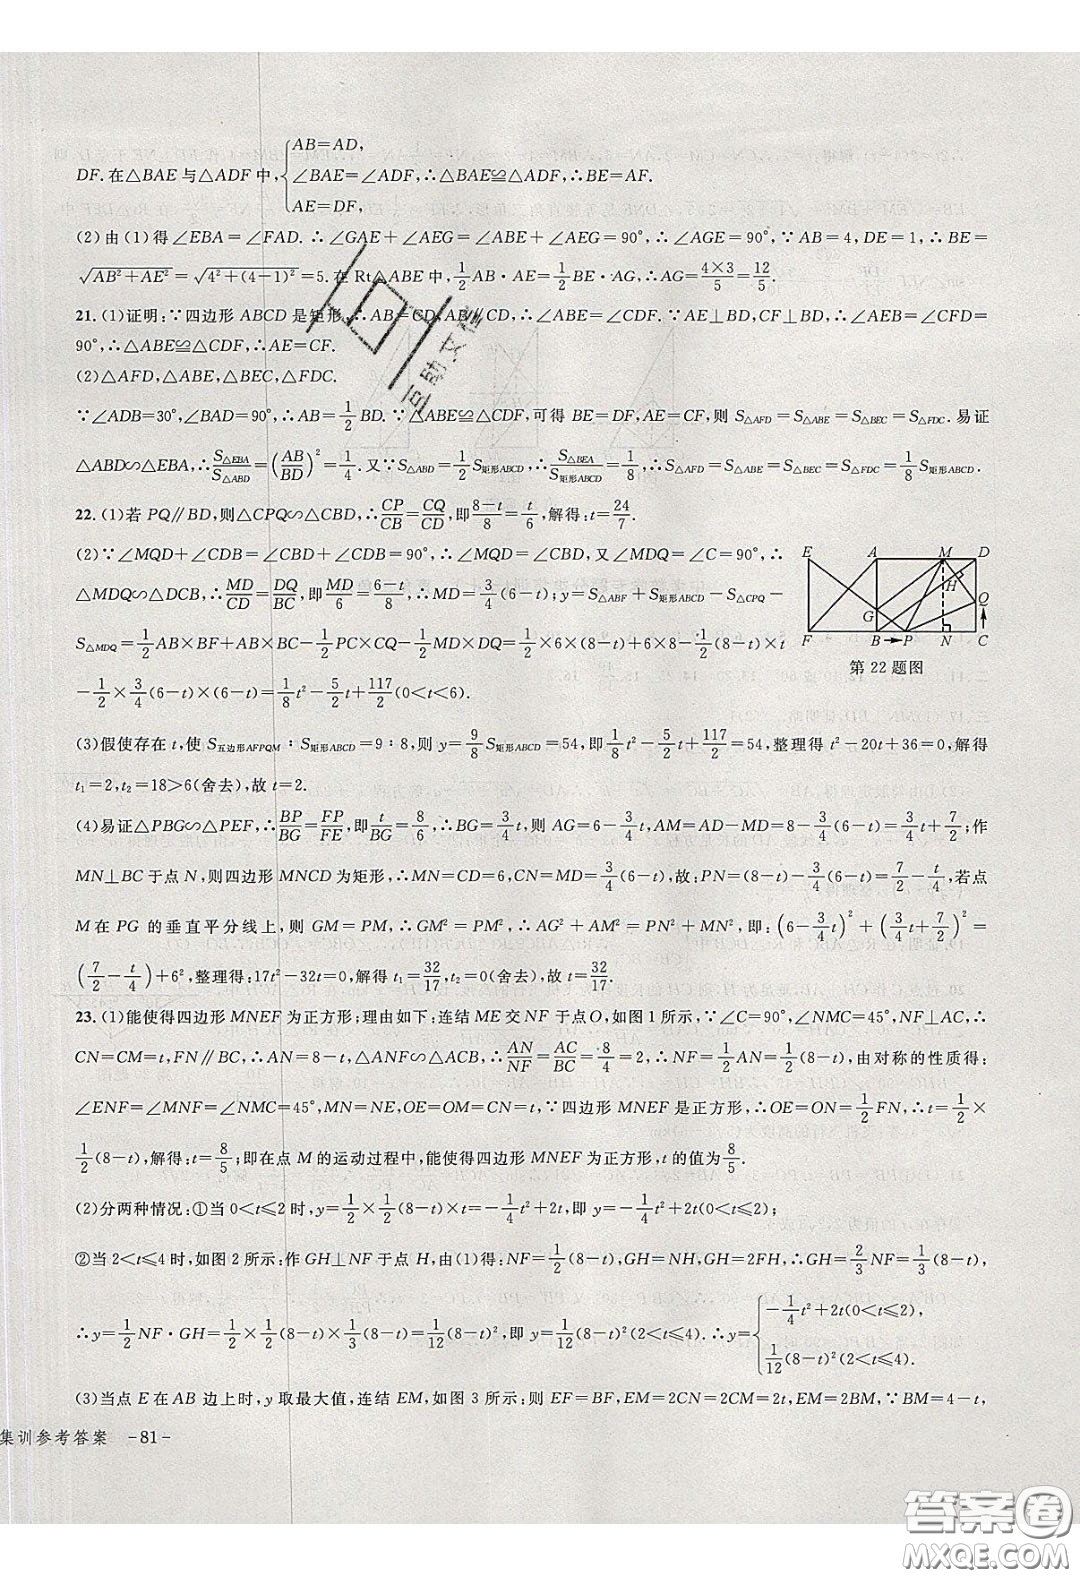 AB=AD,
DF.在△BAE与△ADF中,{∠BAE=∠ADF,∴△BAE≌△ADF,∴BE=AF.
AE=DF,
(2)由(1)得∠EBA=∠FAD.∴∠GAE+∠AEG=∠ABE+∠AEG=90°,∴∠AGE=90°.∵AB=4,DE=1,∴BE=
√(AB²+AE²)=√(4²+(4-1)²)=5.在Rt△ABE中,1/2AB·AE=1/2BE·AG,∴AG=(4×3)/5=12/5.
21.(1)证明:∵四边形ABCD是矩形,∴AB=CD,AB∥CD,∴∠ABE=∠CDF.∵AE⊥BD,CF⊥BD,∴∠AEB=∠CFD=
90°,∴△ABE≌△CDF,∴AE=CF.
(2)△AFD,△ABE,△BEC,△FDC.
∵∠ADB=30°,∠BAD=90°,∴AB=1/2BD.∵△ABE≌△CDF,可得BE=DF,AE=CF,则S△AFD=S△ABE=S△BEC=S△FDC.易证
△ABD∽△EBA,∴S△EBA/S△ABD=(AB/BD)²=1/4.又∵S△ABD=1/2S矩形ABCD,∴S△BEA/S矩形ABCD=1/8,∴S△AFD=S△ABE=S△BEC=S△FDC=1/8S矩形ABCD.
22.(1)若PQ∥BD,则△CPQ∽△CBD,∴CP/CB=CQ/CD,即(8-t)/8=t/6,解得:t=24/7.
(2)∵∠MQD+∠CDB=∠CBD+∠CDB=90°,∴∠MQD=∠CBD,又∠MDQ=∠C=90°,∴
△MDQ∽△DCB,∴MD/CD=DQ/BC,即MD/6=(6-t)/8,∴MD=3/4(6-t);y=S△ABF+S矩形ABCD-S△CPQ-
S△MDQ=1/2AB×BF+AB×BC-1/2PC×CQ-1/2MD×DQ=1/2×6×(8-t)+6×8-1/2(8-t)×t
-1/2×3/4(6-t)×(6-t)=1/8t²-5/2t+117/2(0<t<6).
E A M D H Q G F B P N C
第22题图
(3)假使存在t,使S五边形AFPQM∶S矩形ABCD=9∶8,则y=9/8S矩形ABCD=54,即1/8t²-5/2t+117/2=54,整理得t²-20t+36=0,解得
t₁=2,t₂=18>6(舍去),故t=2.
(4)易证△PBG∽△PEF,∴BP/BG=FP/FE,即t/BG=8/6,∴BG=3/4t,则AG=6-3/4t,AM=AD-MD=8-3/4(6-t)=3/4t+7/2;作
MN⊥BC于点N,则四边形MNCD为矩形,∴MN=CD=6,CN=MD=3/4(6-t),故:PN=(8-t)-3/4(6-t)=7/2-t/4,若点
M在PG的垂直平分线上,则GM=PM,∴GM²=PM²,∴AG²+AM²=PN²+MN²,即:(6-3/4t)²+(3/4t+7/2)²=
(7/2-t/4)+6²,整理得:17t²-32t=0,解得t₁=32/17,t₂=0(舍去),故t=32/17.
23.(1)能使得四边形MNEF为正方形;理由如下:连结ME交NF于点O,如图1所示,∵∠C=90°,∠NMC=45°,NF⊥AC,∴
CN=CM=t,FN∥BC,∴AN=8-t,△ANF∽△ACB,∴AN/NF=AC/BC=8/4=2,∴NF=1/2AN=1/2(8-t),由对称的性质得:
∠ENF=∠MNF=∠NMC=45°,MN=NE,OE=OM=CN=t,∵四边形MNEF是正方形,∴OE=ON=1/2FN,∴t=1/2×
1/2(8-t),解得:t=8/5;即在点M的运动过程中,能使得四边形MNEF为正方形,t的值为8/5.
(2)分两种情况:①当0<t≤2时,y=1/2×1/2(8-t)×t=-1/4t²+2t,即y=-1/4t²+2t(0<t≤2);
②当2<t≤4时,如图2所示:作GH⊥NF于点H,由(1)得:NF=1/2(8-t),GH=NH,GH=2FH,∴GH=2/3NF=1/3(8-t),
∴y=1/2NF·GH=1/2×1/2(8-t)×1/3(8-t)=1/12(8-t)²,即y=1/12(8-t)²(2<t≤4).∴y={-1/4t²+2t(0<t≤2),
1/12(8-t)²(2<t≤4).
(3)当点E在AB边上时,y取最大值,连结EM,如图3所示;则EF=BF,EM=2CN=2CM=2t,EM=2BM.∵BM=4-t,
集训参考答案 -81-
答案卷
MXQE.COM